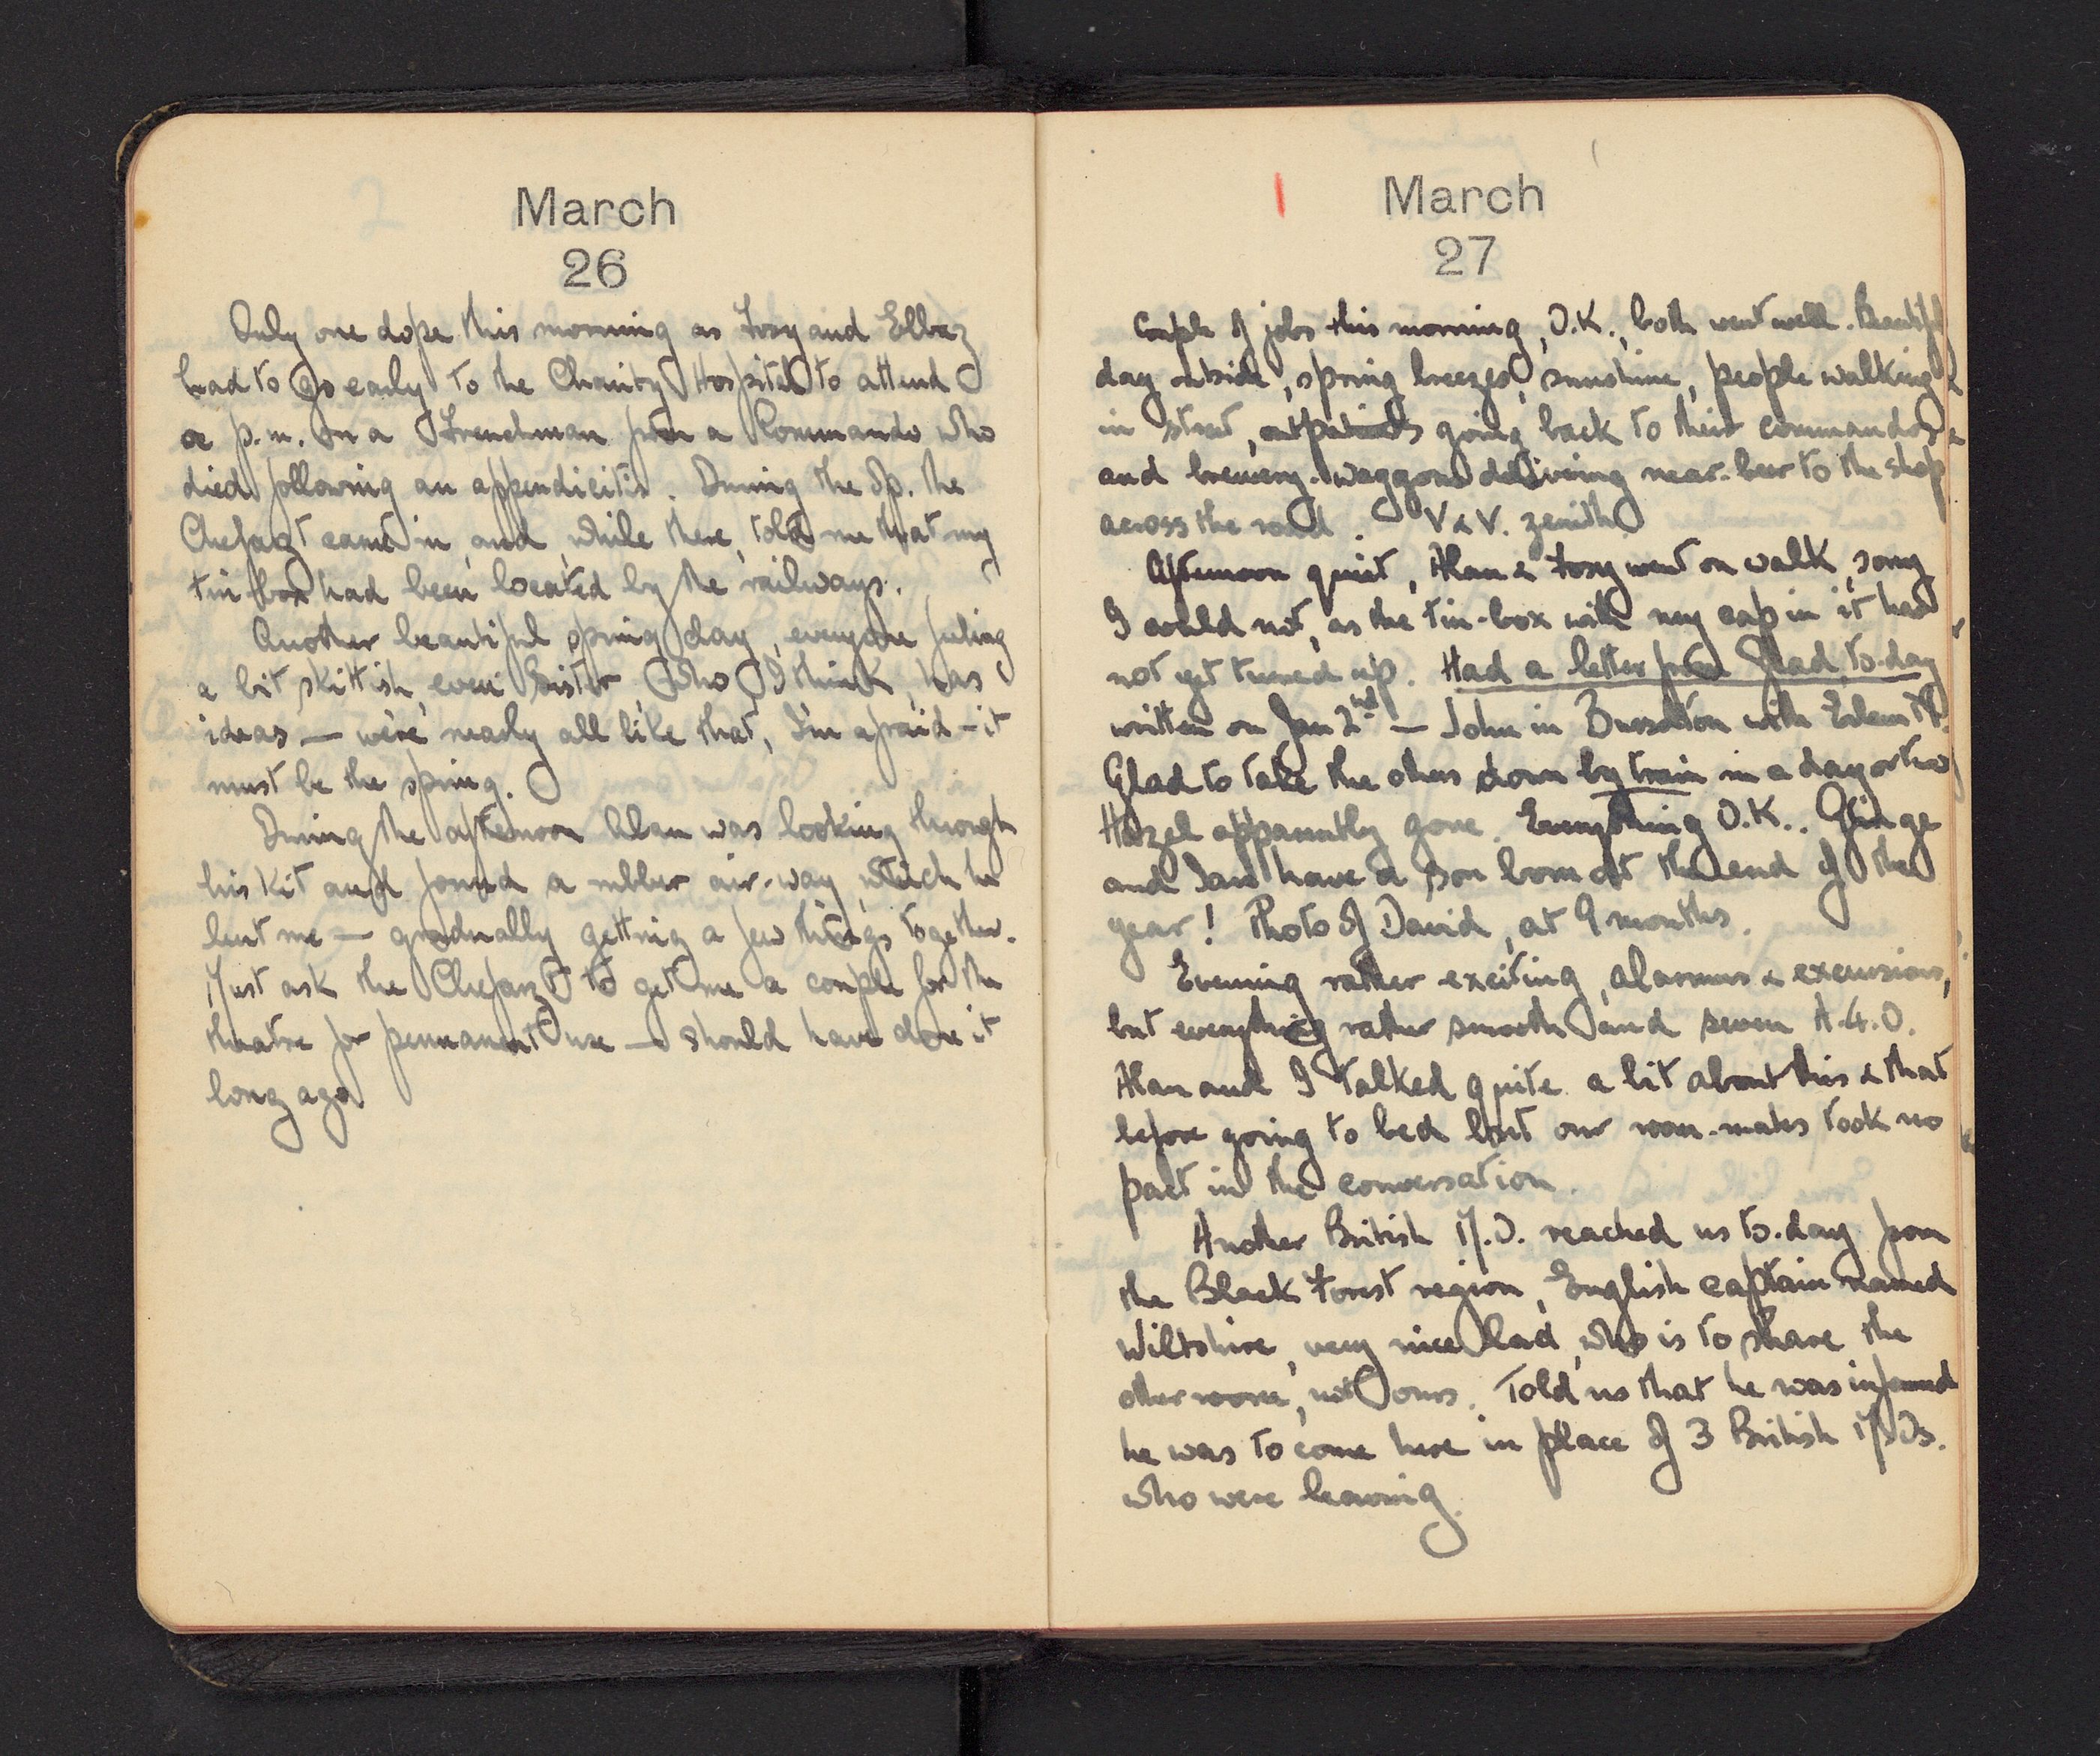 March
26
Only one dope this morning as Foxy and Elbaz
had to go early to the Charity Hospital to attend
a p.m. on a Frenchman from a Commando who
died following an appendicitis. During the Op. the
Chefarzt came in and, while there, told me that my
tin box had been located by the railways.
Another beautiful spring day, everyone feeling
a bit skittish, even Sister, who, I think, has
ideas — we're nearly all like that, I'm afraid – it
must be the spring.
During the afternoon Alan was looking through
his kit and found a rubber air-way, which he
lent me — gradually getting a few things together.
Must ask the Chefarzt to get me a couple for the
theatre for permanent use — should have done it
long ago.
March
27
Couple of jobs this morning, O.K., both went well. Beautiful
day outside, spring breezes, sunshine, people walking
in street, outpatients going back to their commandos
and brewery-waggons delivering near-beer to the shop
across the road. V & V. zenith.
Afternoon quiet, Alan & Foxy went on walk, sorry
I could not, as the tin-box with my cap in it had
not yet turned up. Had a letter from Glad to-day
written on Jan 2nd — John in with
Glad to take the others down by train in a day or two
Hazel apparently gone. Everything O.K..
and Ian have a son born at the end of the
year! Photo of David, at 9 months.
Evening rather exciting, alarums & excursions,
but everything rather smooth and seven A.4.O.
Alan and I talked quite a bit about this & that
before going to bed but our room-mates took no
part in the conversation.
Another British M.O. reached us to-day from
the Black Forest region, English captain named
Wiltshire, very nice lad, who is to share the
other room, not ours. Told us that he was informed
he was to come here in place of 3 British M.Os.
who were leaving.